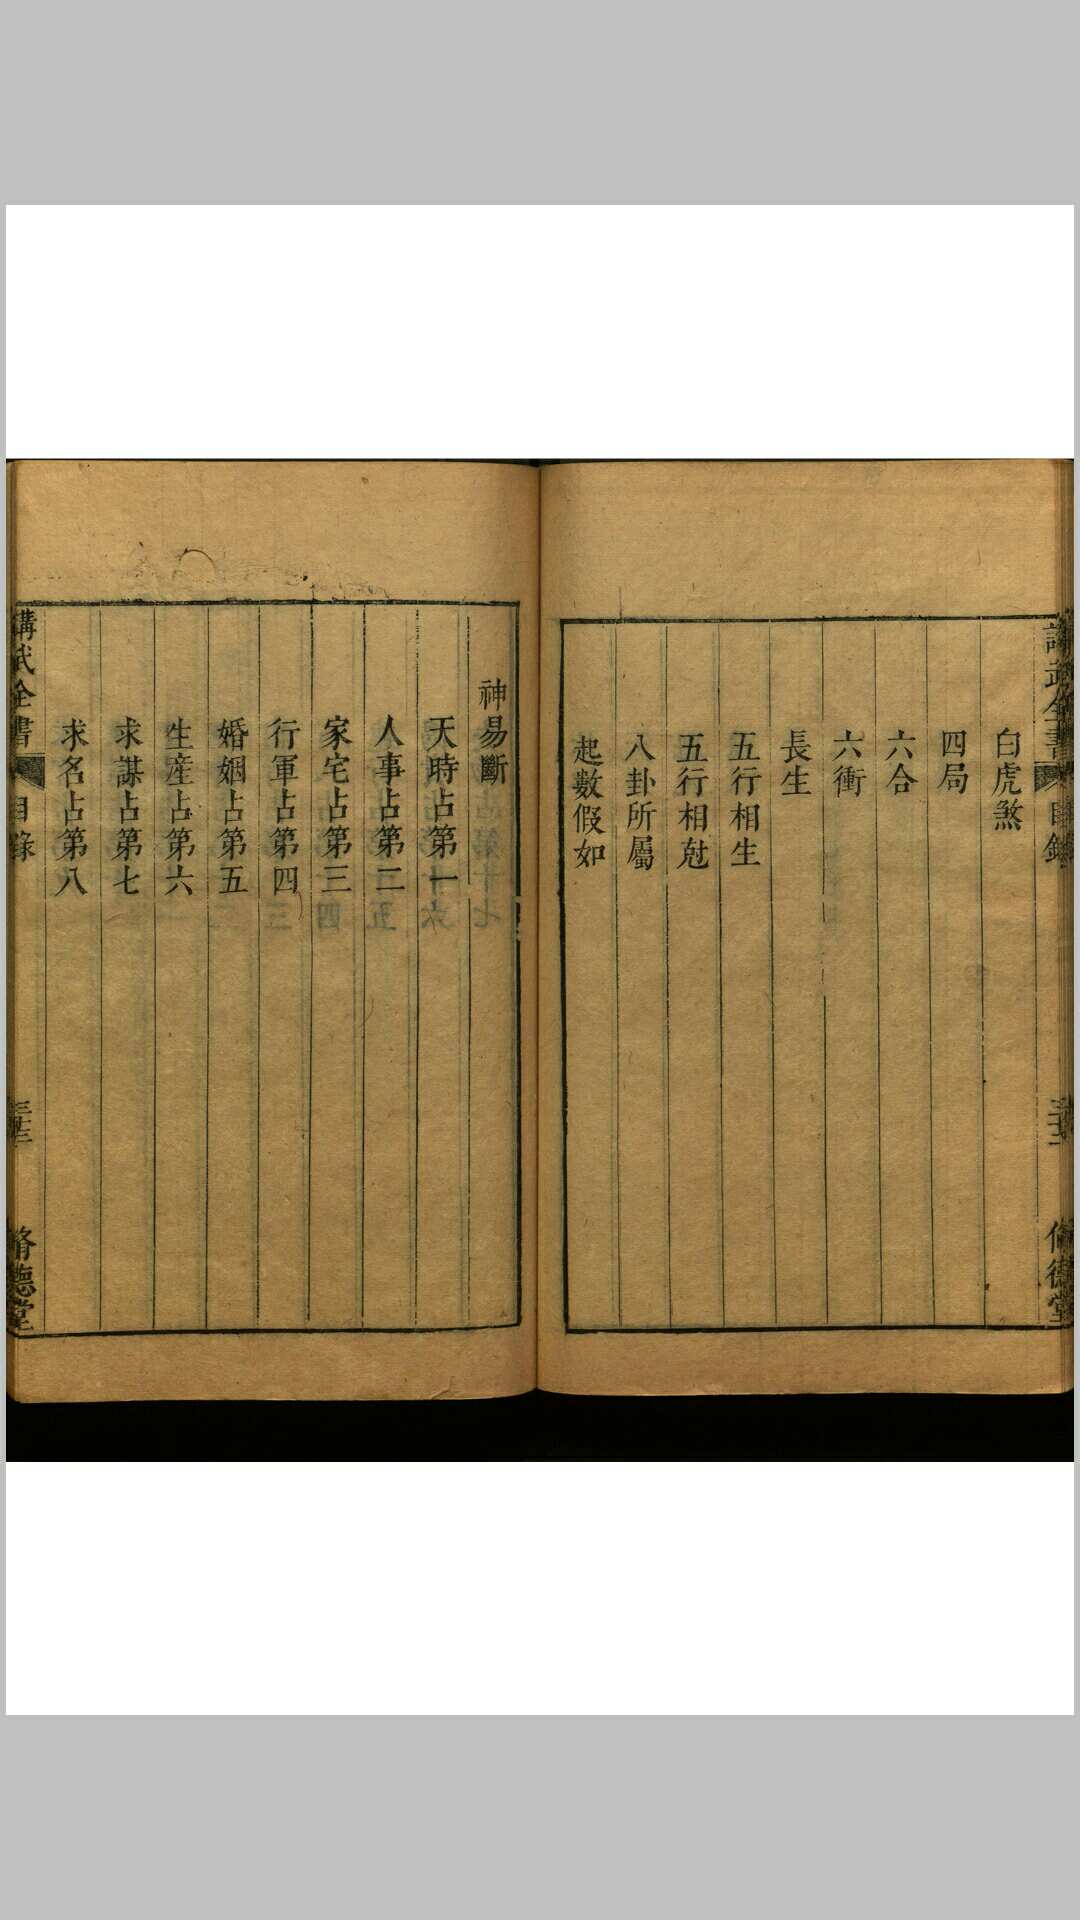 講武全書
目錄
脩德堂
白虎煞
四局
六合
六衝
長生
五行相生
五行相尅
八卦所屬
起數假如
神易斷
天時占第一
人事占第二
家宅占第三
行軍占第四
婚姻占第五
生産占第六
求謀占第七
求名占第八
講武全書
目錄
脩德堂